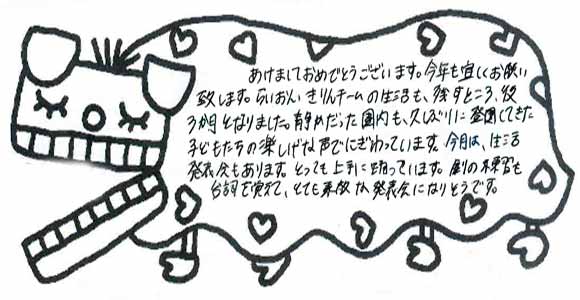 あけましておめでとうございます。今年も宜しくお願い
致します。らいおんきりんチームの生活も、残すところ、後
3か月となりました。静かだった園内も、久しぶりに登園してきた
子どもたちの楽しげな声でにぎわっています。今月は、生活
発表会もあります。とっても上手に踊っています。劇の練習も
台詞を覚えて、とても素敵な発表会になりそうです。